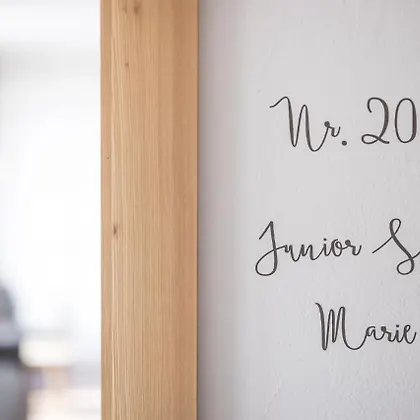 Nr. 20
Junior S
Marie